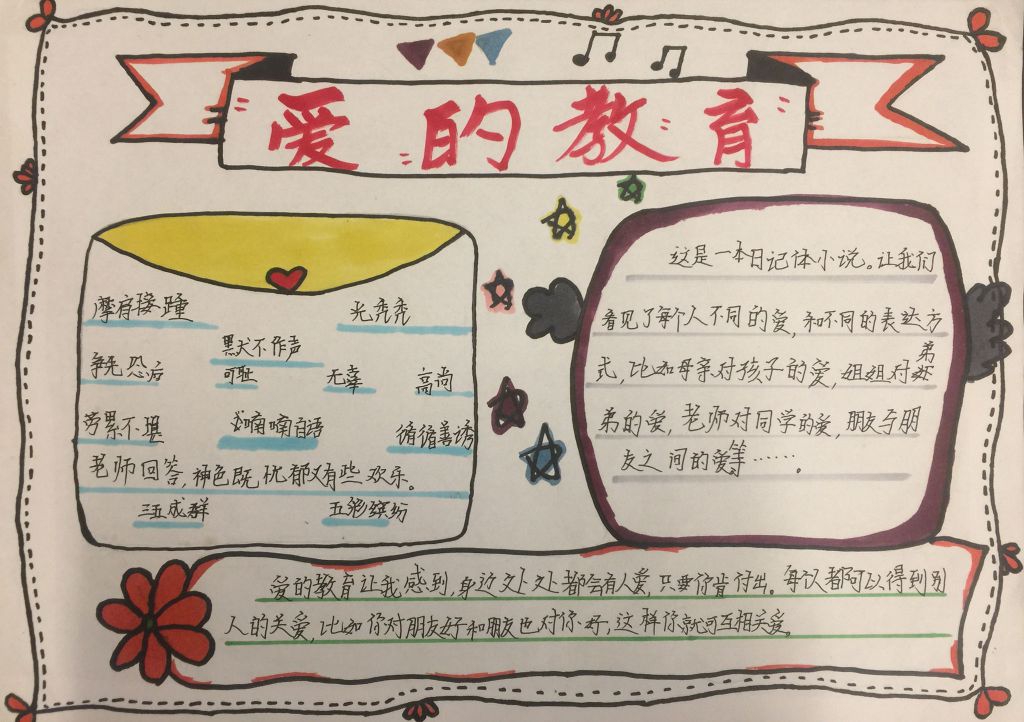 爱的教育
摩肩接踵 光秃秃
争先恐后 默不作声
可耻 无辜 高尚
劳累不堪 喃喃自语 循循善诱
老师回答,神色既忧郁又有些欢乐。
三五成群 五彩缤纷
这是一本日记体小说。让我们
看见了每个人不同的爱,和不同的表达方
式,比如母亲对孩子的爱,姐姐对弟弟
弟的爱,老师对同学的爱,朋友与朋
友之间的爱等……。
爱的教育让我感到,身边处处都会有人爱,只要你肯付出。每人都可以得到别
人的关爱,比如你对朋友好和朋友也对你好,这样你就可互相关爱。